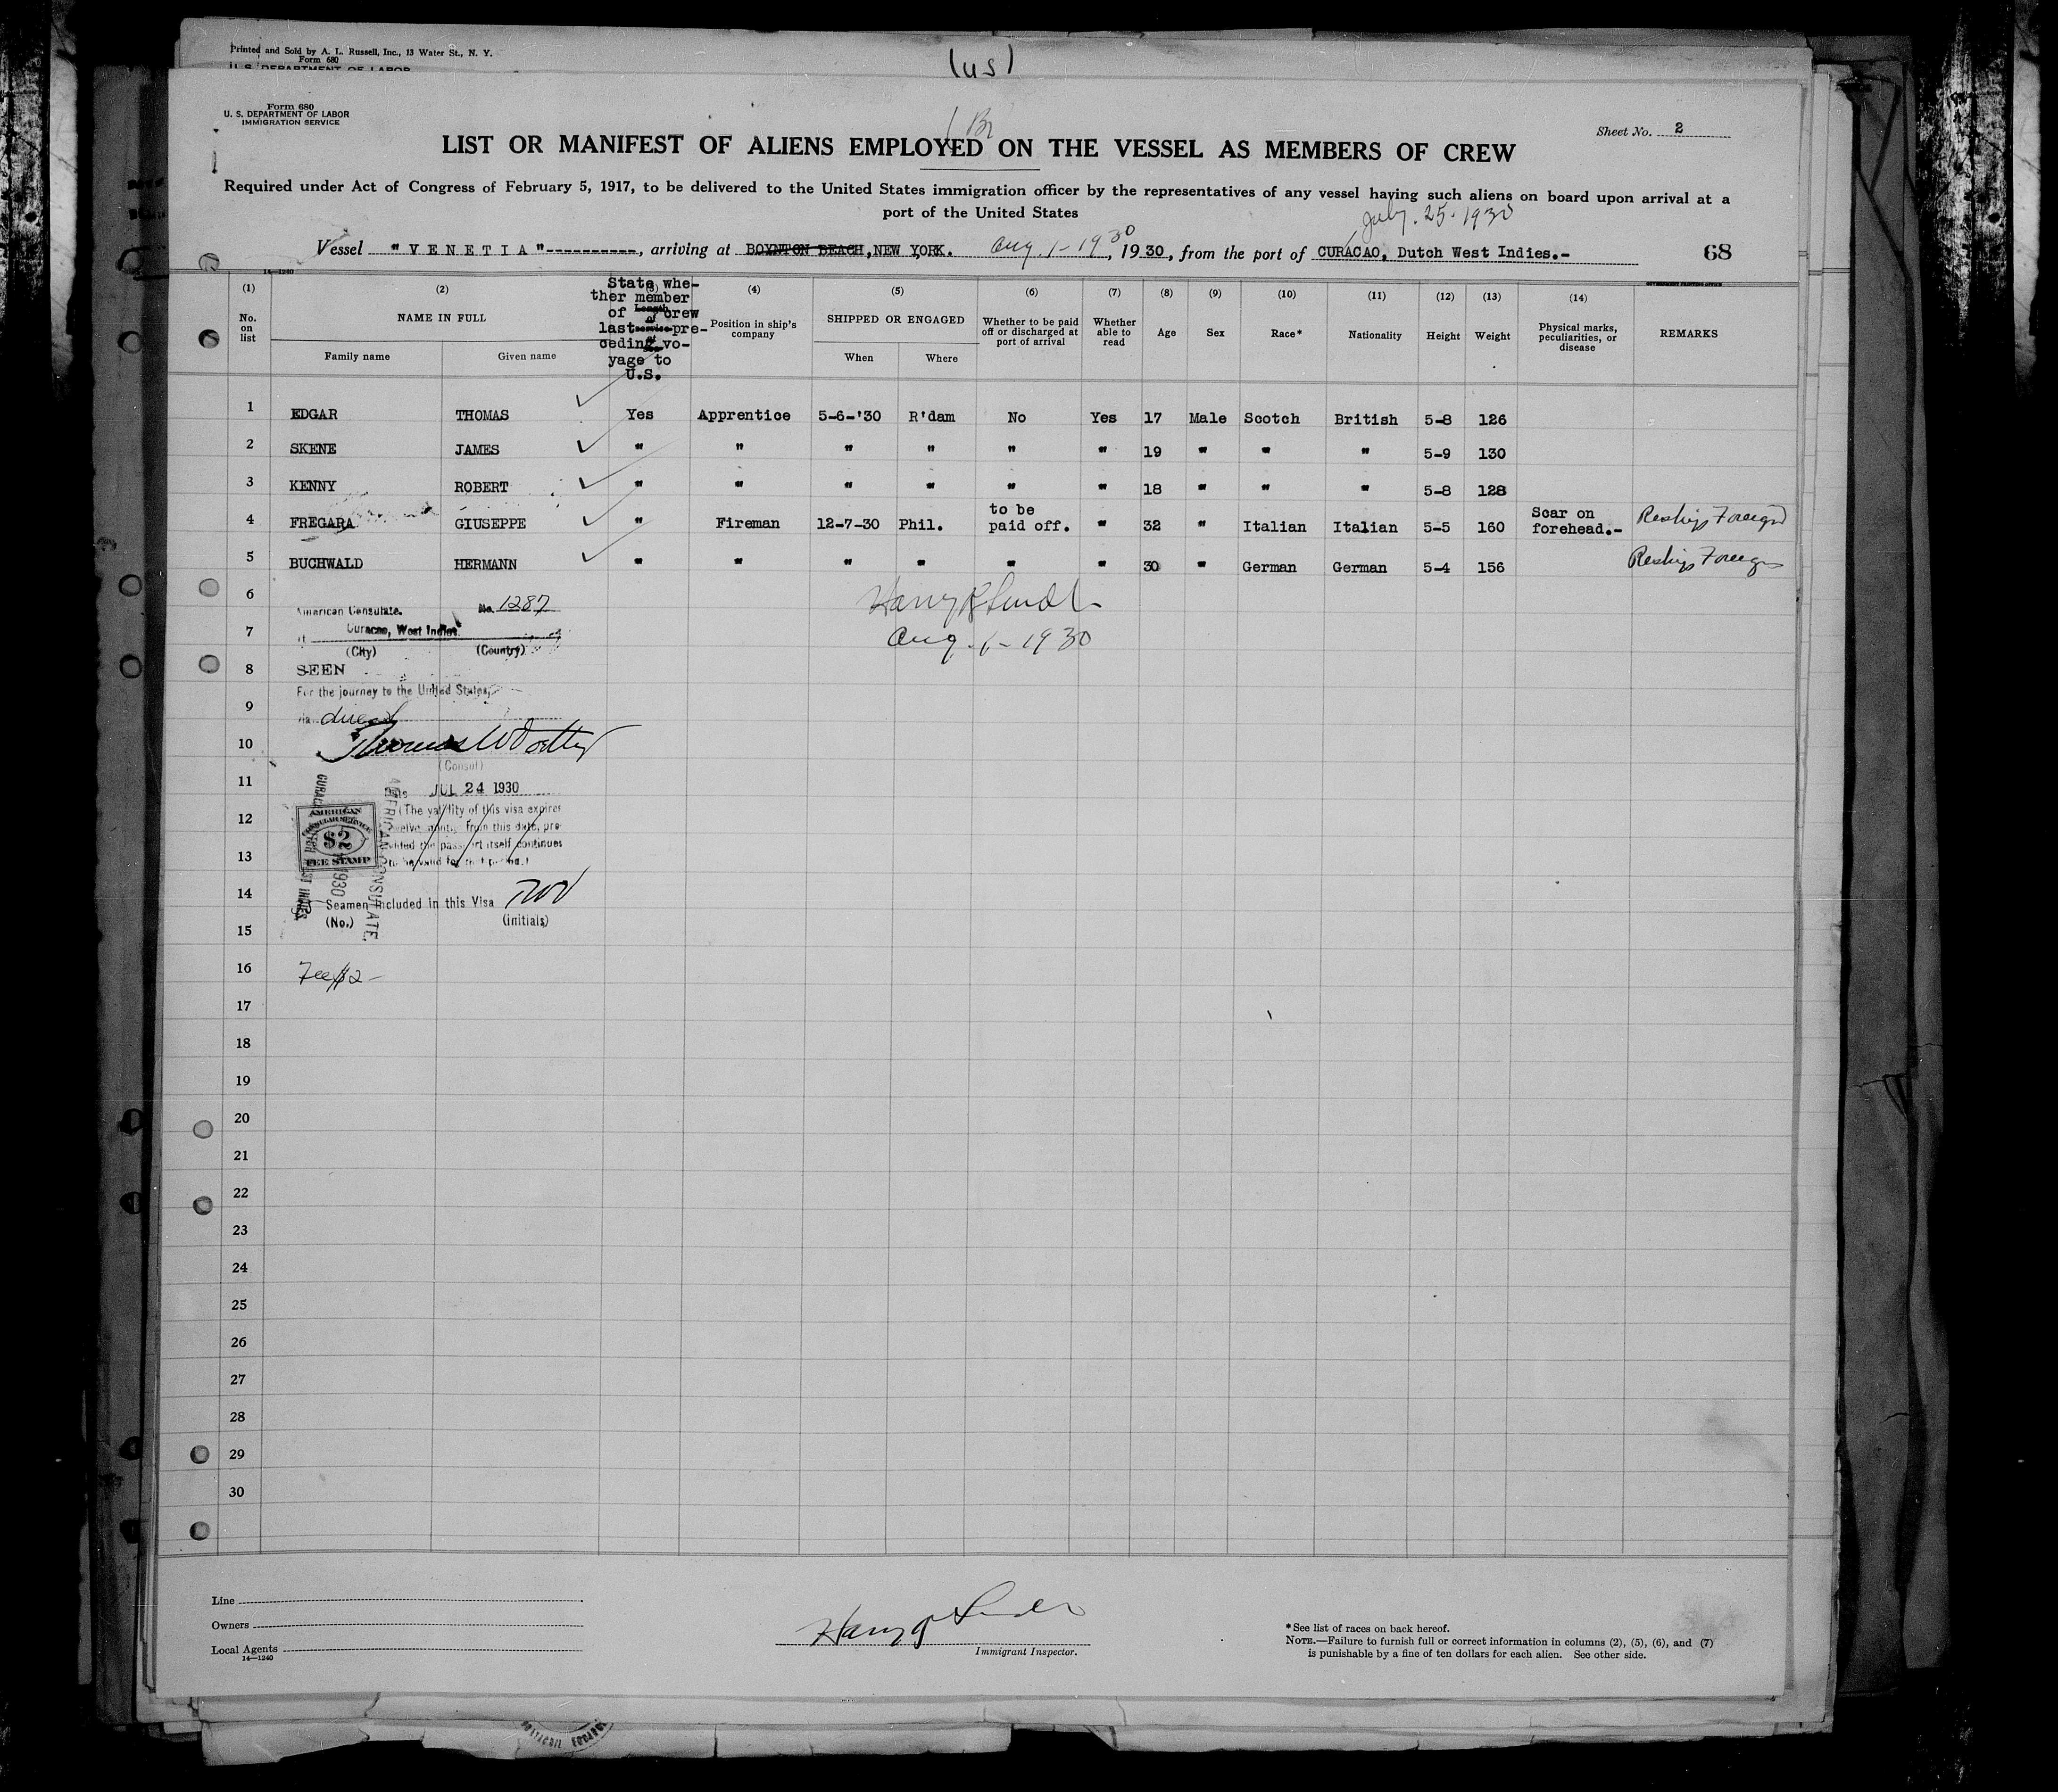 Printed and Sold by A. L. Russell, Inc., 13 Water St., N. Y.
Form 680
U. S. DEPARTMENT OF LABOR
(us)
Form 680
U. S. DEPARTMENT OF LABOR
IMMIGRATION SERVICE
Br
Sheet No. 2
LIST OR MANIFEST OF ALIENS EMPLOYED ON THE VESSEL AS MEMBERS OF CREW
Required under Act of Congress of February 5, 1917, to be delivered to the United States immigration officer by the representatives of any vessel having such aliens on board upon arrival at a
port of the United States
July. 25. 1930
Vessel "VENETIA"----------, arriving at BOYNTON BEACH, NEW YORK. Aug 1-1930, 1930, from the port of CURACAO, Dutch West Indies.-
68
14—1240
GOVERNMENT PRINTING OFFICE
(1) (2) (3) (4) (5) (6) (7) (8) (9) (10) (11) (12) (13) (14)
No. on list
NAME IN FULL
Family name
Given name
State whe-
ther member
of crew
last pre-
ceding vo-
yage to
U.S.
Length of service
Position in ship's company
SHIPPED OR ENGAGED
When
Where
Whether to be paid off or discharged at port of arrival
Whether able to read
Age
Sex
Race*
Nationality
Height
Weight
Physical marks, peculiarities, or disease
REMARKS
1 EDGAR THOMAS Yes Apprentice 5-6-'30 R'dam No Yes 17 Male Scotch British 5-8 126
2 SKENE JAMES " " " " " " 19 " " " 5-9 130
3 KENNY ROBERT " " " " " " 18 " " " 5-8 128
4 FREGARA GIUSEPPE " Fireman 12-7-30 Phil. to be paid off. " 32 " Italian Italian 5-5 160 Scar on forehead.- Reship Foreign
5 BUCHWALD HERMANN " " " " " " 30 " German German 5-4 156 Reship Foreign
6
7
8
9
10
11
12
13
14
15
16
17
18
19
20
21
22
23
24
25
26
27
28
29
30
American Consulate. No. 1287
at Curacao, West Indies.
(City) (Country)
SEEN
For the journey to the United States,
via direct
(Consul)
Date JUL 24 1930
(The validity of this visa expires
twelve months from this date, pro-
vided the passport itself continues
to be valid for that period.)
AMERICAN
CONSULAR SERVICE
$2
FEE STAMP
AMERICAN CONSULATE.
1930
Seamen included in this Visa
(No.) (initials)
Fee $2-
Aug. 1-1930
Line
Owners
Local Agents
14—1240
Immigrant Inspector.
*See list of races on back hereof.
NOTE.—Failure to furnish full or correct information in columns (2), (5), (6), and (7)
is punishable by a fine of ten dollars for each alien. See other side.